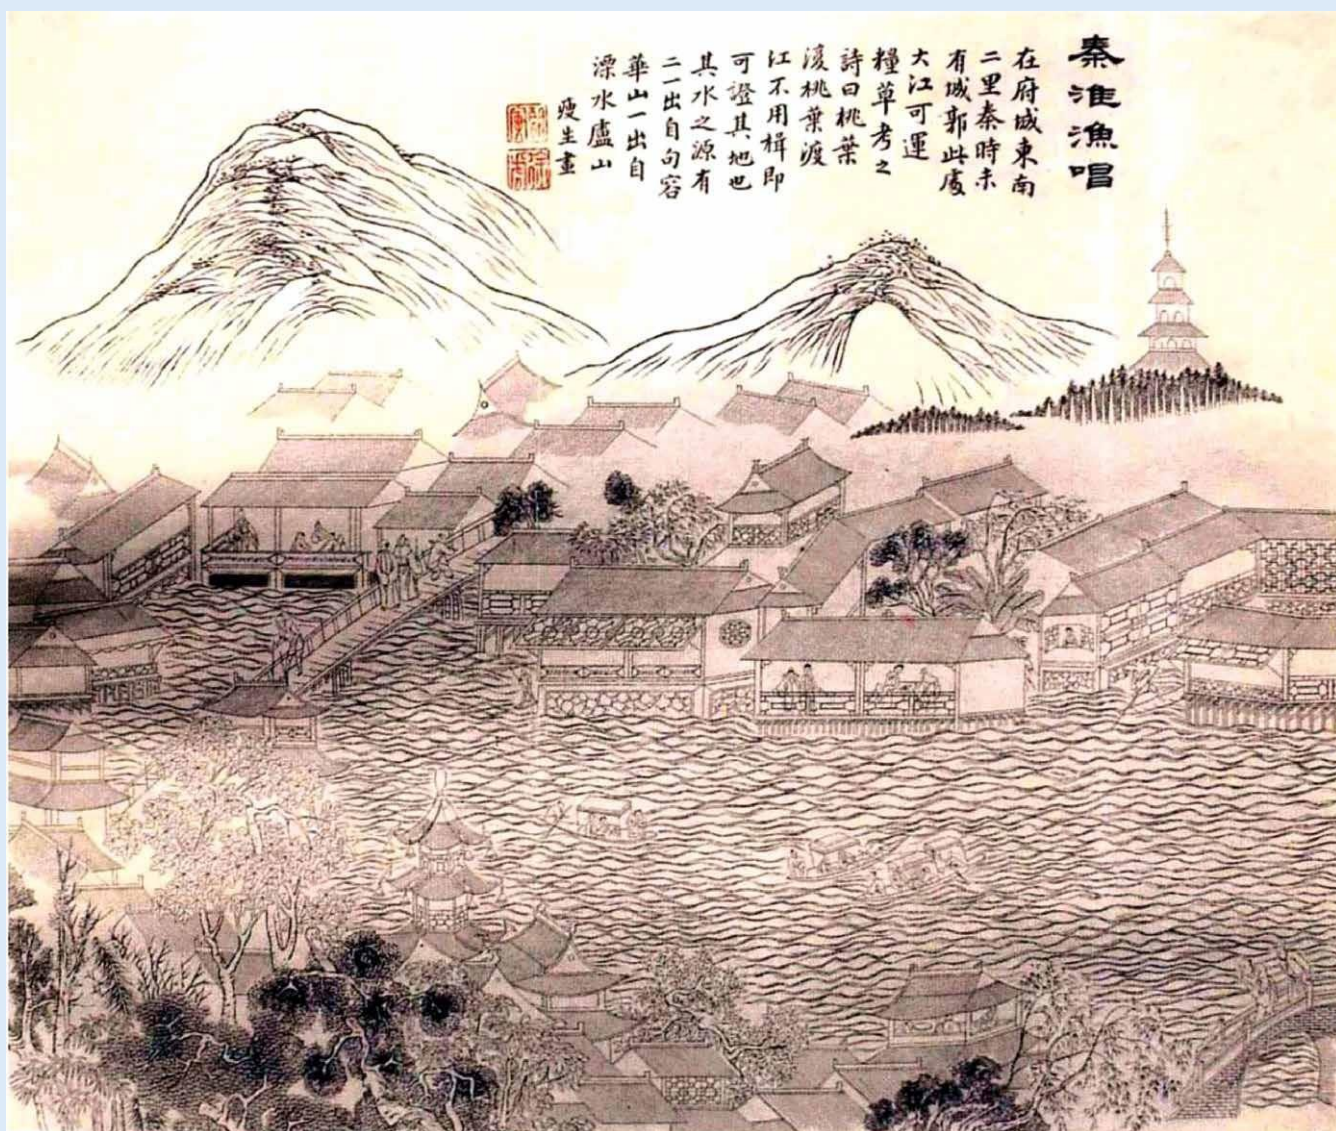 秦淮漁唱
在府城東南
二里秦時未
有城郭此處
大江可運
糧草考之
詩曰桃葉
渡桃葉渡
江不用楫即
可證其地也
其水之源有
二一出自句容
華山一出自
溧水盧山
瘦生畫